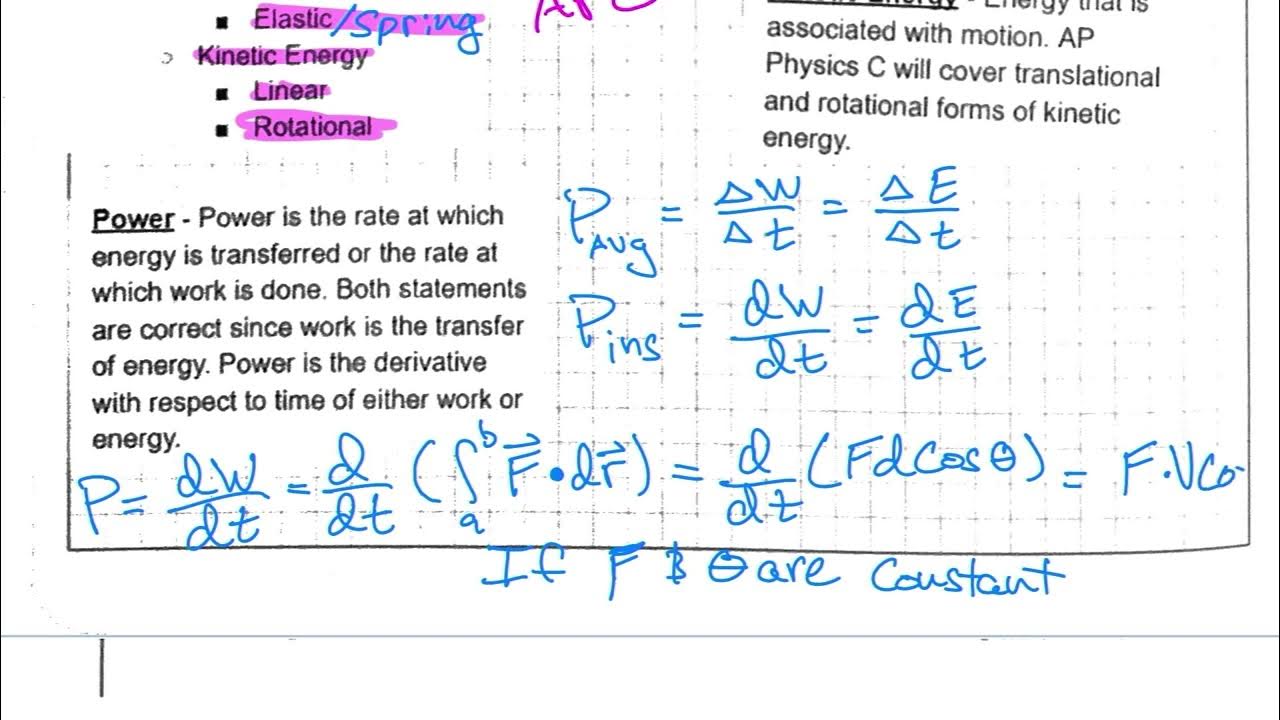 ▪ Elastic/Spring
Kinetic Energy
▪ Linear
▪ Rotational
Energy that is
associated with motion. AP
Physics C will cover translational
and rotational forms of kinetic
energy.
Power - Power is the rate at which
energy is transferred or the rate at
which work is done. Both statements
are correct since work is the transfer
of energy. Power is the derivative
with respect to time of either work or
energy.
P_AVG = ΔW/Δt = ΔE/Δt
P_ins = dW/dt = dE/dt
P = dW/dt = d/dt (∫_a^b F⃗ • dr⃗) = d/dt (Fd Cos θ) = F·V Co
If F & θ are constant